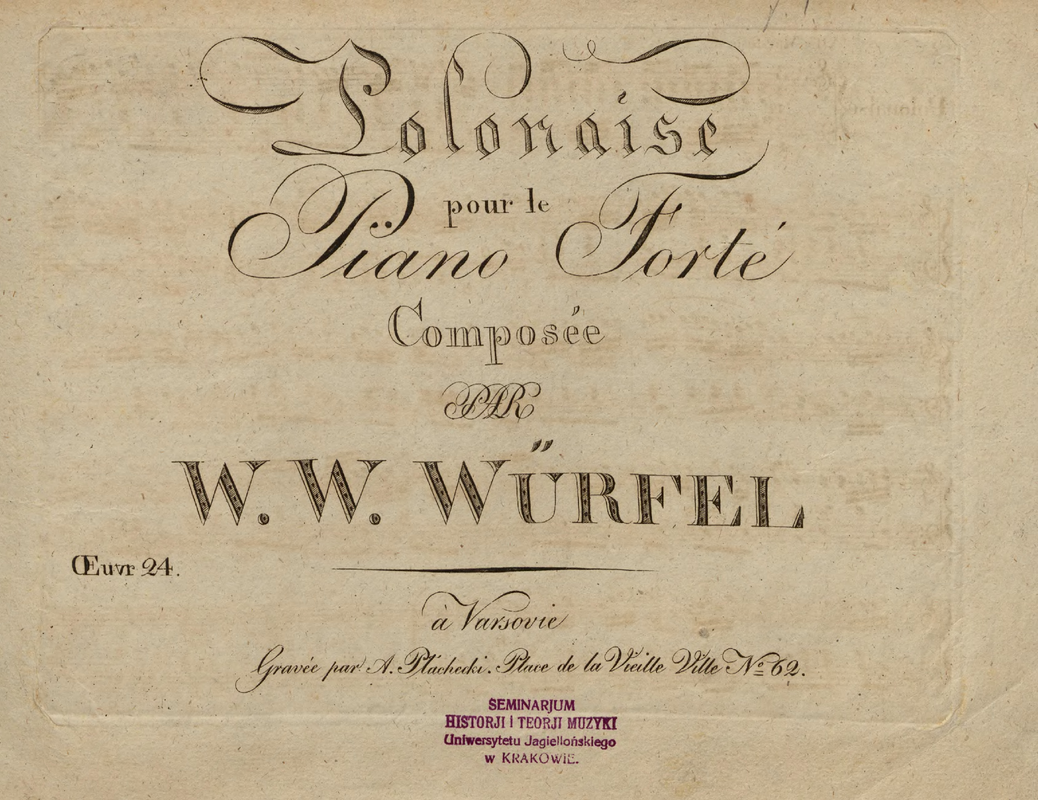 Polonaise
pour le
Pïano Forté
Composée
PAR
W. W. WÜRFEL
Œuvr 24.
à Varsovie
Gravée par A. Płáchecki. Place de la Vieille Ville No 62.
SEMINARJUM
HISTORJI i TEORJI MUZYKI
Uniwersytetu Jagiellońskiego
w KRAKOWIE.